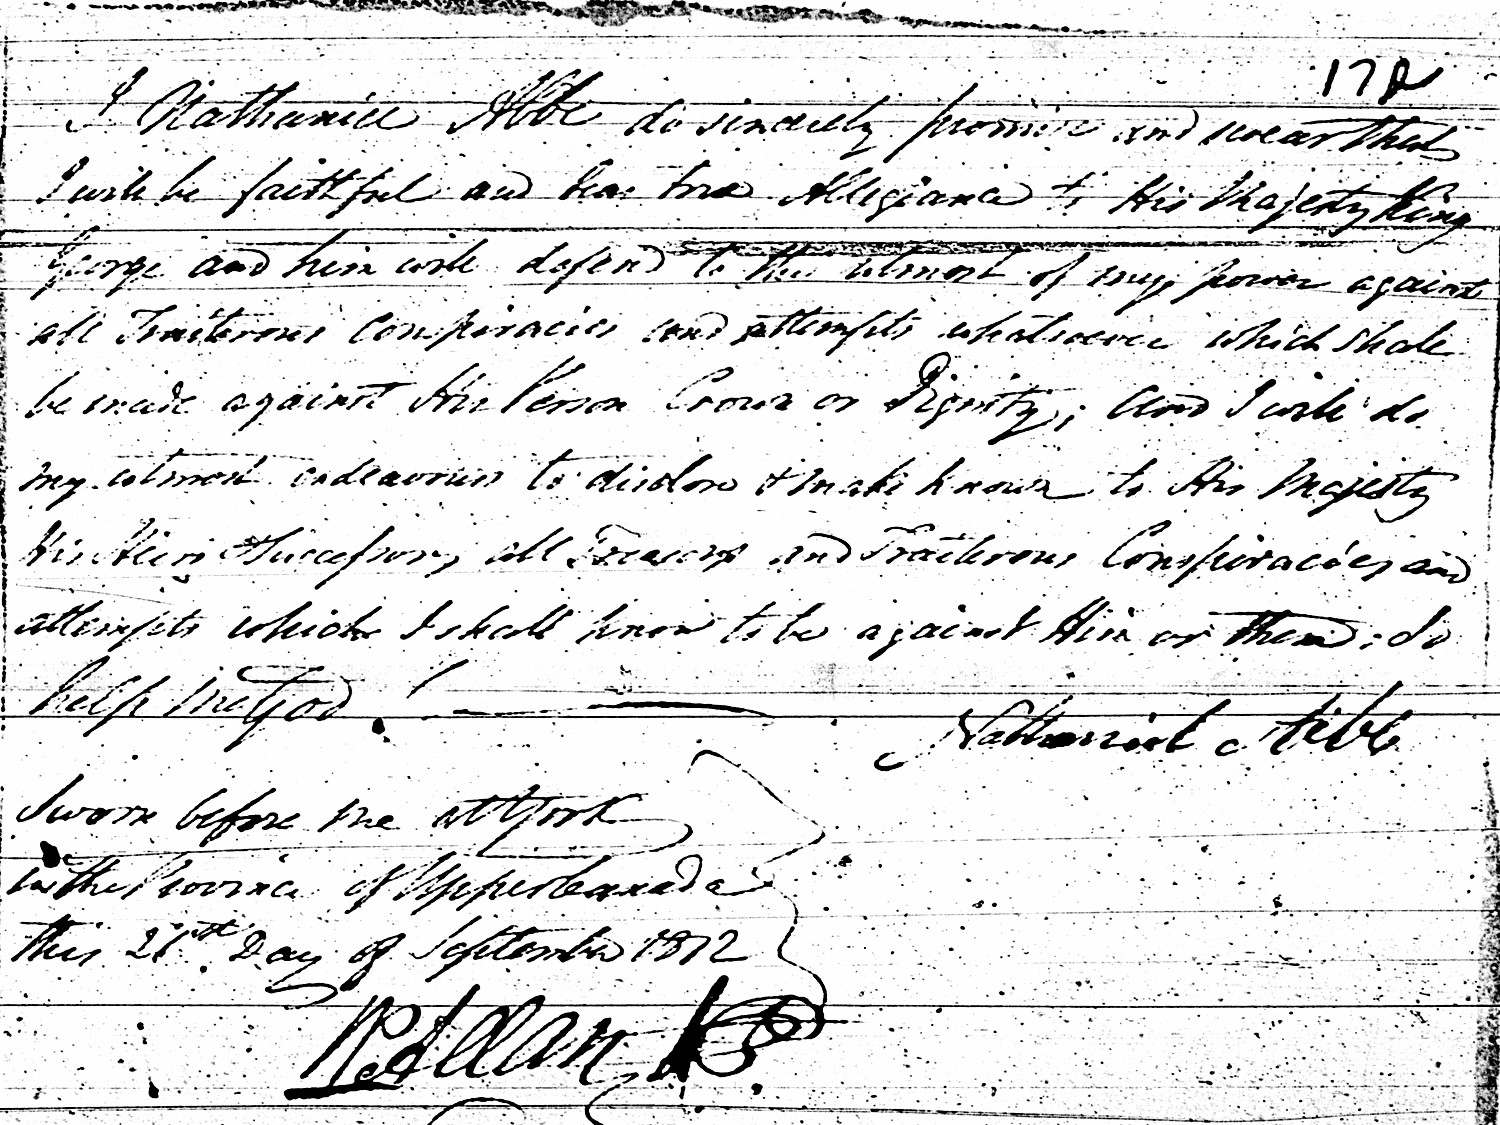 I Nathaniel Abbe do sincerely promise and swear that
I will be faithful and bear true Allegiance to His Majesty King
George and him will defend to the utmost of my power against
all Traiterous Conspiracies and attempts whatsoever which shall
be made against His Person Crown or Dignity; And I will do
my utmost endeavours to disclose & make known to His Majesty
His Heirs & Successors, all Treasons and Traiterous Conspiracies and
attempts which I shall know to be against Him or them: So
help me God!
Nathaniel Abbe
Sworn before me at York
in the Province of Upper Canada
this 21st Day of September 1812
Allan